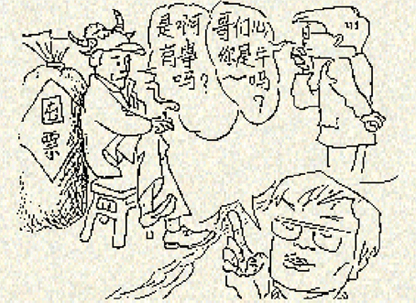 是啊
有事
吗?
哥们儿
你是牛
吗
?
票